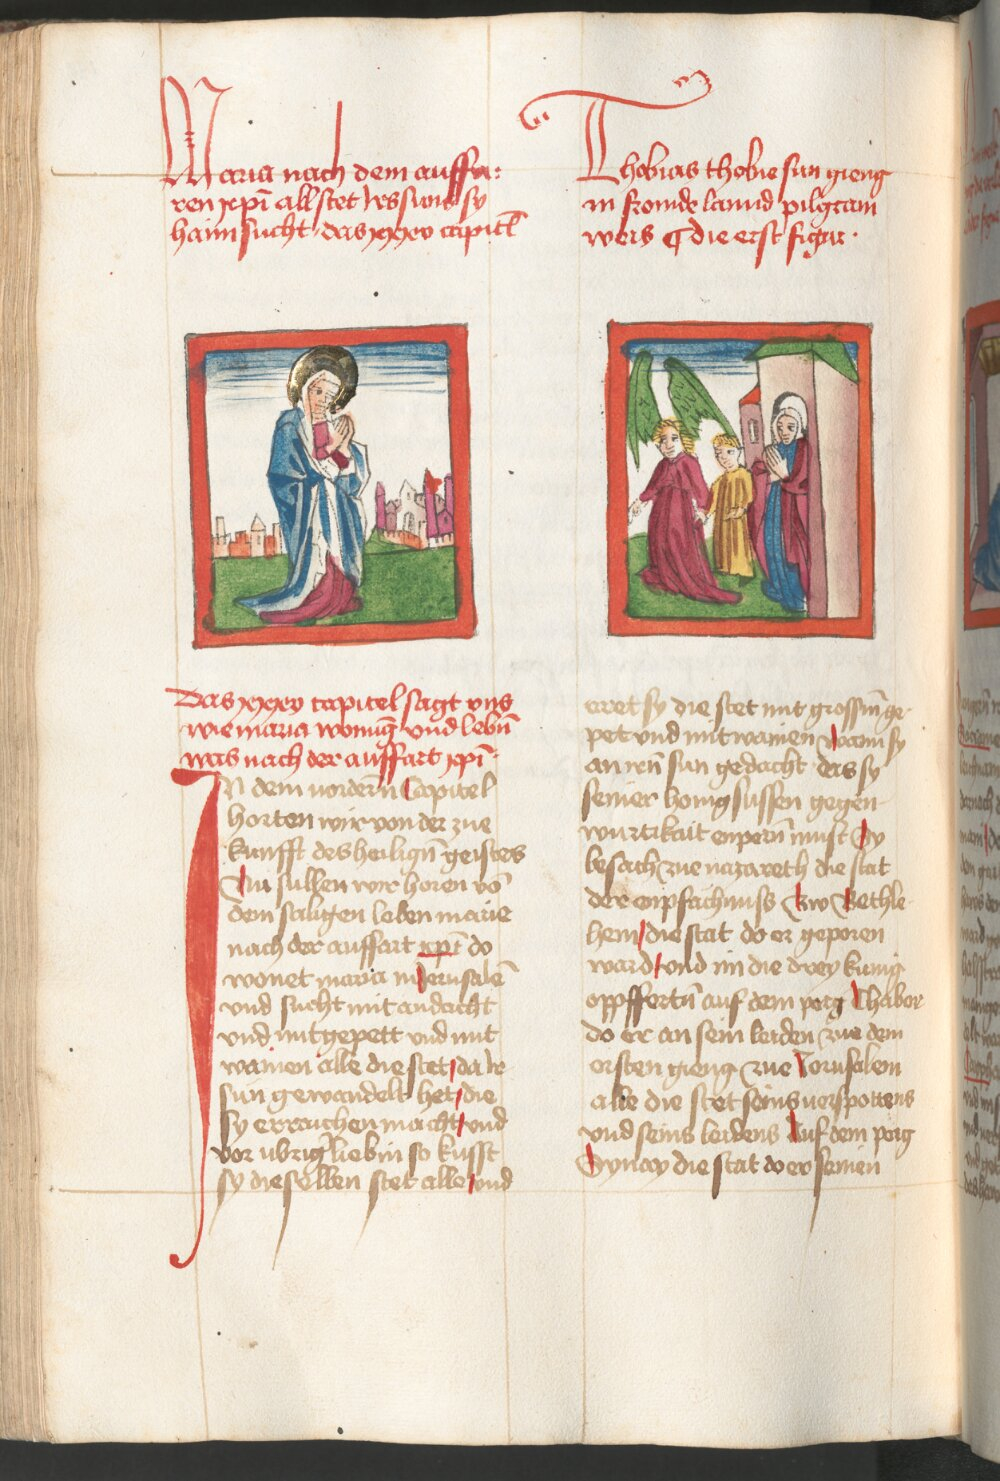 Maria nach dem auffa:
ren xpi all stet yrs suns sy
haim sucht das xxxv capitel
Thobias thobie sun gieng
in fromde lannd pilgram
weis ¶ die erst figur ·
Das xxxv capitel sagt uns
wie maria wonung vnd lebn̄
was nach der auffart xpi ·
In dem vordern̄ Capitel
horten wir von der zue
kunfft des heilign̄ geistes
Nu sullen wir horen vō
dem saligen leben marie
nach der auffart xpi do
wonet maria in Jerusalē
vnd sucht mit andacht
vnd mit gepett vnd mit
wainen alle die stet da ir
sun gewandelt het die
sy erraichen macht vnd
vor ubrig lieb in so kusst
sy dieselben stet alle vnd
eret sy die stet mit grossm̄ ge
pet vnd mit wainen wann sy
an irn̄ sun gedacht das sy
seiner honigsussen gegen
wurtikait enpern̄ must Sy
besach zue nazareth die stat
der enpfachnuss Zw Bethle
hem die stat do er geporen
ward vnd im die drey kunig
opffertn̄ auf dem perg Thabor
do er an sein leiden zue dem
ersten gieng zue Jerusalem
alle die stet seins verspottens
vnd seins leidens Auf dem perg
Synay die stat do er seinen